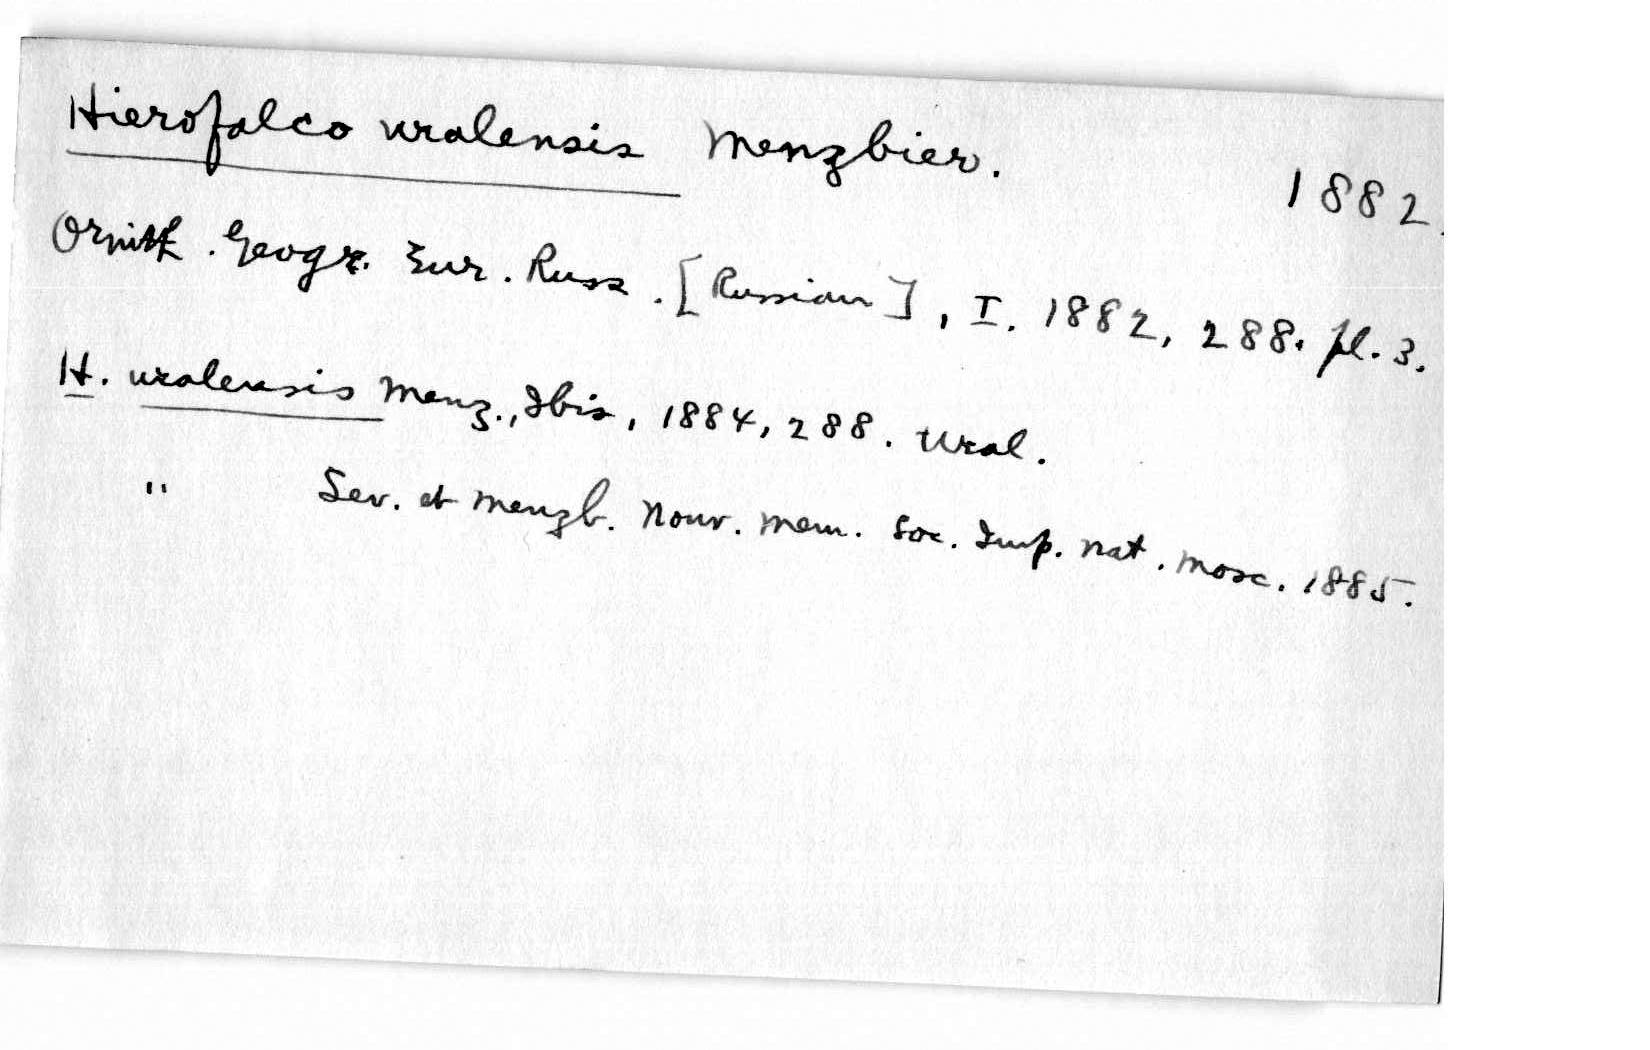 Hierofalco uralensis Menzbier. 1882.
Ornith. Geogr. Eur. Russ. [Russian], I. 1882, 288. pl. 3.
H. uralensis Menz., Ibis, 1884, 288. Ural.
" Sev. et Menzb. Nouv. Mem. Soc. Imp. Nat. Mosc. 1885.